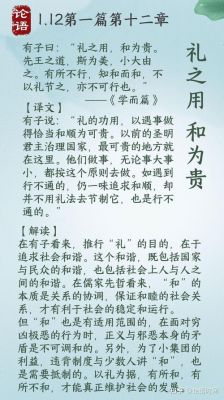 论语
1.12第一篇第十二章
礼之用 和为贵
有子曰：“礼之用，和为贵。
先王之道，斯为美，小大由
之。有所不行，知和而和，不
以礼节之，亦不可行也。”
——《学而篇》
【译文】
有子说：“礼的功用，以遇事做
得恰当和顺为可贵。以前的圣明
君主治理国家，最可贵的地方就
在这里。他们做事，无论事大事
小，都按这个原则去做。如遇到
行不通的，仍一味追求和顺，却
并不用礼法去节制它，也是行不
通的。”
【解读】
在有子看来，推行“礼”的目的，在于
追求社会和谐。这个和谐，既包括国家
与民众的和谐，也包括社会上人与人之
间的和谐。在儒家先哲看来， “和”的
本质是关系的协调，保证和睦的社会关
系，才有利于社会的稳定和运行。
但“和”也是有适用范围的，在面对穷
凶极恶的行为时，正义与邪恶本身的矛
盾是不可调和的。另外，为了小集团的
利益，违背制度与少数人讲“和”，也
是需要抵制的。以礼为据，有所和，有
所不和，才能真正维护社会的发展。